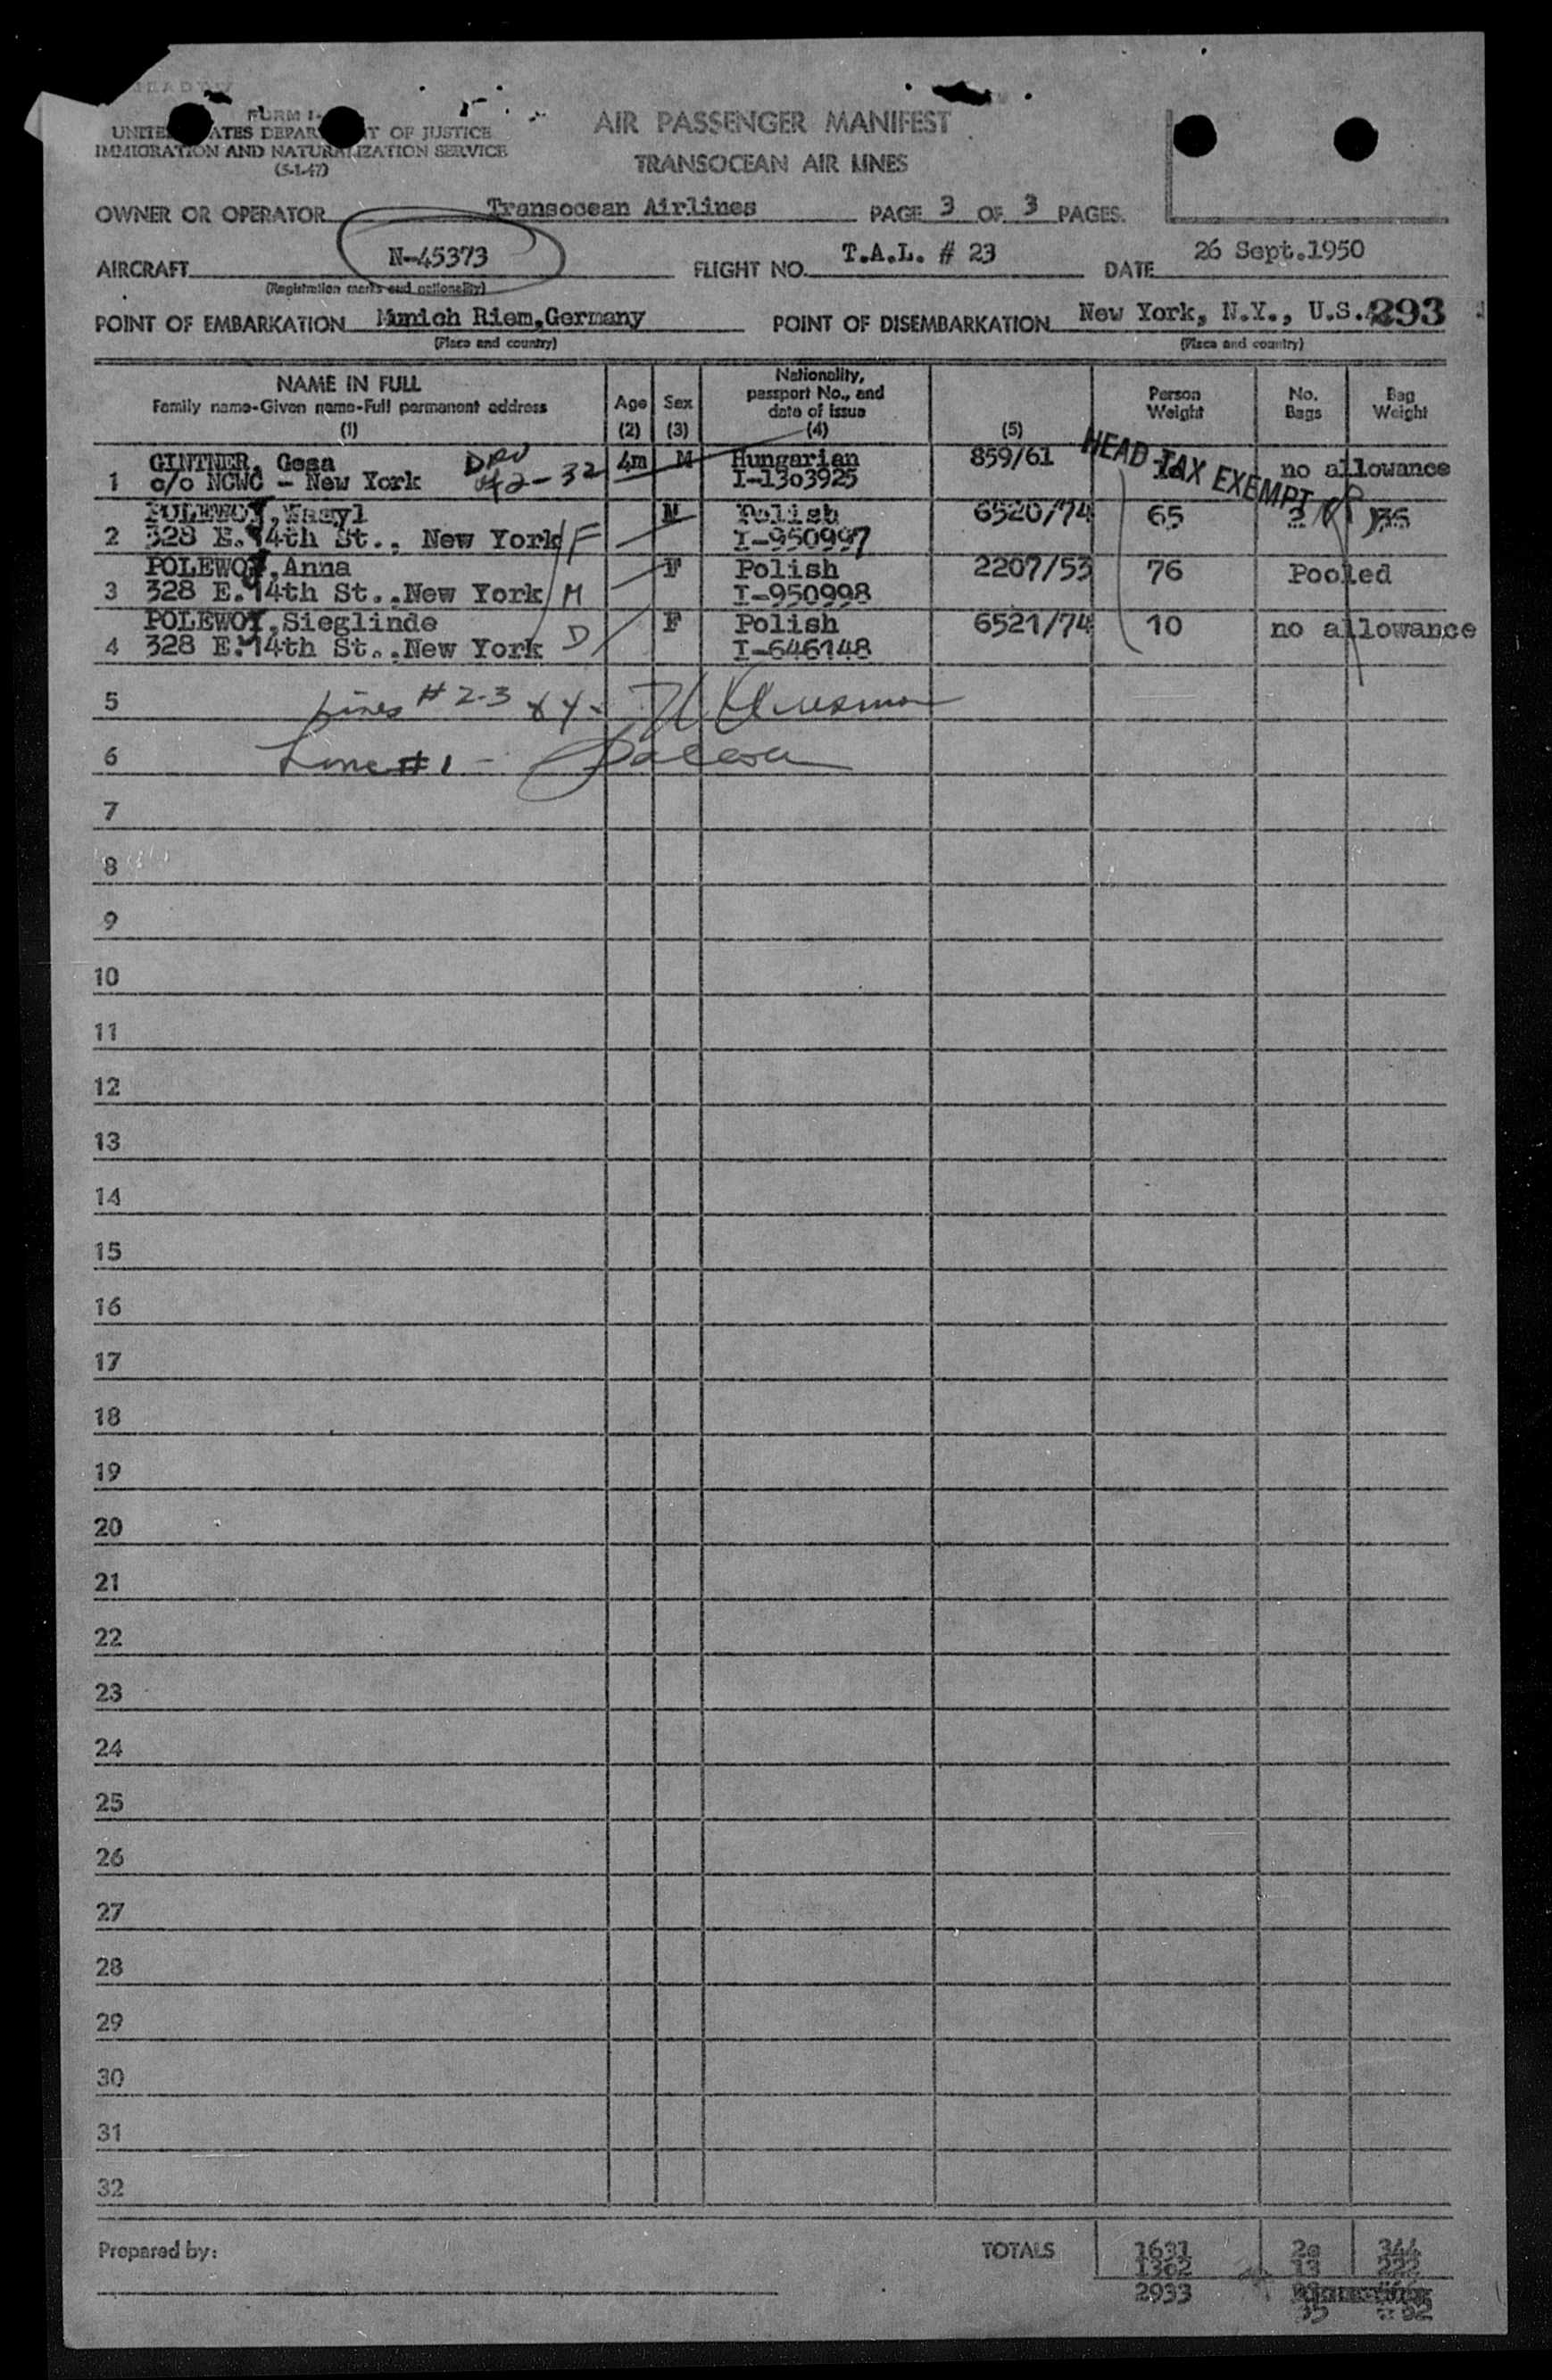 FORM I-
UNITED STATES DEPARTMENT OF JUSTICE
IMMIGRATION AND NATURALIZATION SERVICE
(5-1-47)
AIR PASSENGER MANIFEST
TRANSOCEAN AIR LINES
OWNER OR OPERATOR Transocean Airlines PAGE 3 OF 3 PAGES.
AIRCRAFT N-45373 FLIGHT NO. T.A.L. # 23 DATE 26 Sept.1950
(Registration marks and nationality)
POINT OF EMBARKATION Munich Riem,Germany POINT OF DISEMBARKATION New York, N.Y., U.S. 293
(Place and country) (Place and country)
NAME IN FULL
Family name-Given name-Full permanent address
(1)
Age
(2)
Sex
(3)
Nationality,
passport No., and
date of issue
(4)
(5)
Person
Weight
No.
Bags
Bag
Weight
HEAD TAX EXEMPT
GINTNER, Gesa 4m M Hungarian 859/61 no allowance
1 c/o NCWC - New York 42-32 I-1303925
POLEWOY,Wasyl M Polish 6520/74 65 2
2 328 E. 14th St., New York F I-950997
POLEWOY,Anna F Polish 2207/53 76 Pooled
3 328 E. 14th St.,New York M I-950998
POLEWOY,Sieglinde F Polish 6521/74 10 no allowance
4 328 E. 14th St.,New York D I-646148
5 Lines # 2-3 & 4 -
6 Line # 1 -
7
8
9
10
11
12
13
14
15
16
17
18
19
20
21
22
23
24
25
26
27
28
29
30
31
32
Prepared by: TOTALS 1631 344
1302 13 222
2933
35